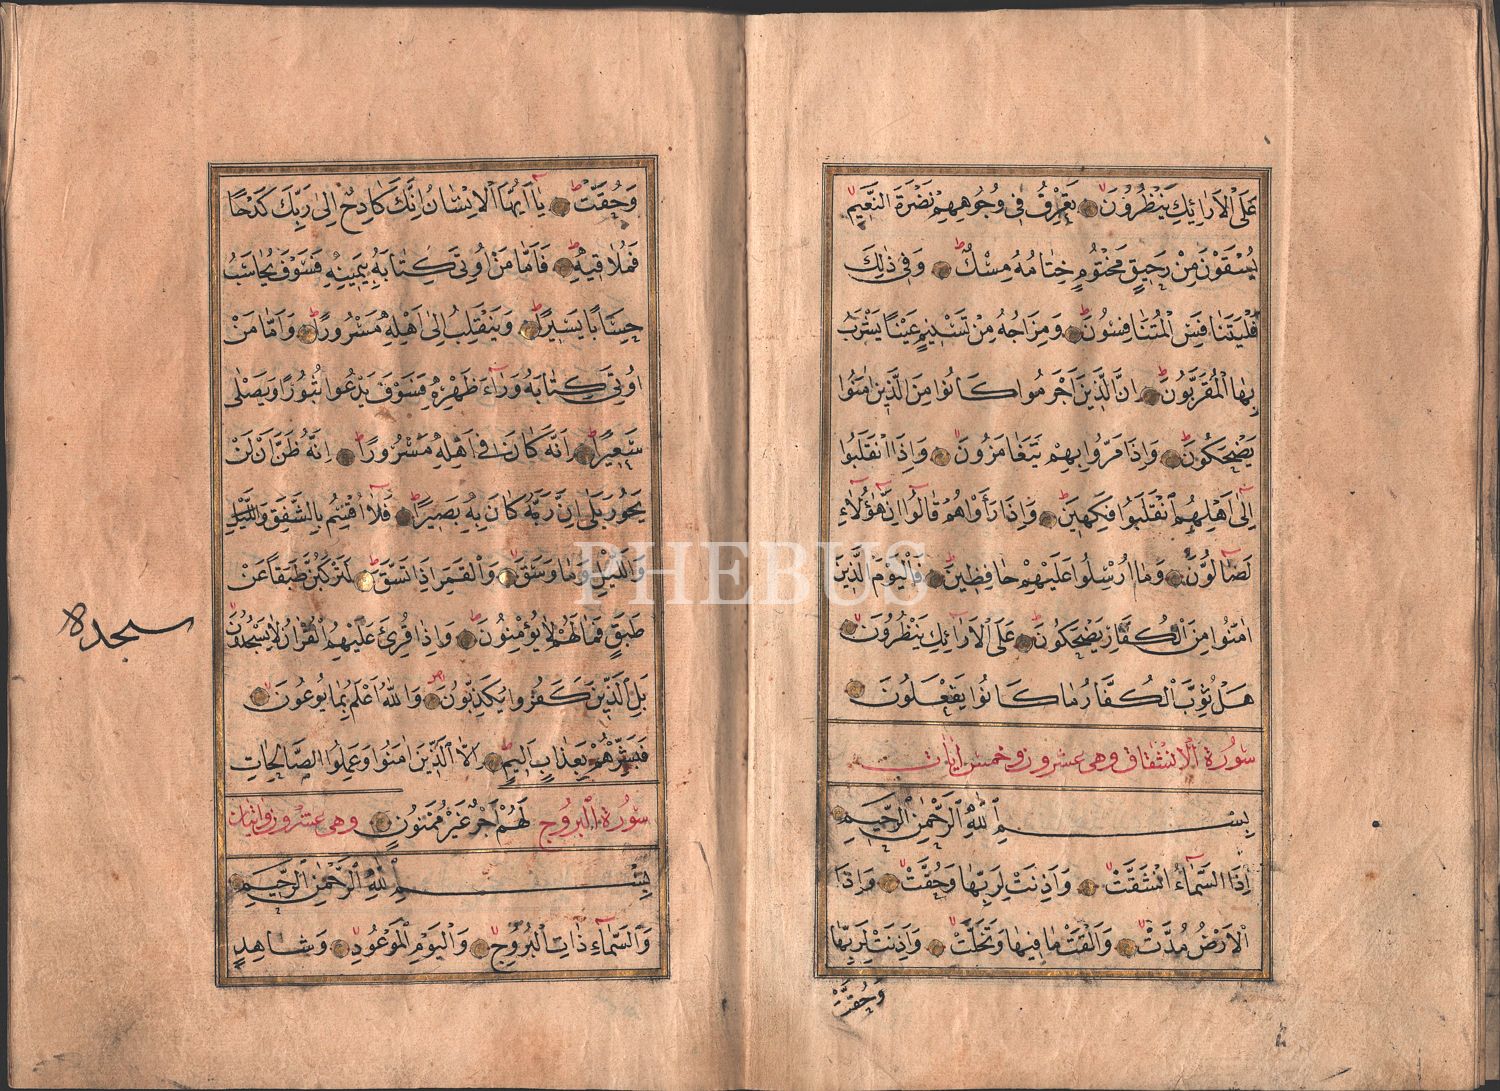 عَلَى الْاَرَائِكِ يَنْظُرُونَ تَعْرِفُ فِي وُجُوهِهِمْ نَضْرَةَ النَّعِيمِ
يُسْقَوْنَ مِنْ رَحِيقٍ مَخْتُومٍ خِتَامُهُ مِسْكٌ وَفِي ذٰلِكَ
فَلْيَتَنَافَسِ الْمُتَنَافِسُونَ وَمِزَاجُهُ مِنْ تَسْنِيمٍ عَيْنًا يَشْرَبُ
بِهَا الْمُقَرَّبُونَ اِنَّ الَّذِينَ اَجْرَمُوا كَانُوا مِنَ الَّذِينَ اٰمَنُوا
يَضْحَكُونَ وَاِذَا مَرُّوا بِهِمْ يَتَغَامَزُونَ وَاِذَا انْقَلَبُوا
اِلٰى اَهْلِهِمُ انْقَلَبُوا فَكِهِينَ وَاِذَا رَاَوْهُمْ قَالُوا اِنَّ هٰؤُلَاءِ
لَضَالُّونَ وَمَا اُرْسِلُوا عَلَيْهِمْ حَافِظِينَ فَالْيَوْمَ الَّذِينَ
اٰمَنُوا مِنَ الْكُفَّارِ يَضْحَكُونَ عَلَى الْاَرَائِكِ يَنْظُرُونَ
هَلْ ثُوِّبَ الْكُفَّارُ مَا كَانُوا يَفْعَلُونَ
سُورَةُ الْاِنْشِقَاقِ وَهِيَ عِشْرُونَ وَخَمْسُ اٰيَاتٍ
بِسْمِ اللّٰهِ الرَّحْمٰنِ الرَّحِيمِ
اِذَا السَّمَاءُ انْشَقَّتْ وَاَذِنَتْ لِرَبِّهَا وَحُقَّتْ وَاِذَا
الْاَرْضُ مُدَّتْ وَاَلْقَتْ مَا فِيهَا وَتَخَلَّتْ وَاَذِنَتْ لِرَبِّهَا
وَحُقَّتْ
وَحُقَّتْ يَا اَيُّهَا الْاِنْسَانُ اِنَّكَ كَادِحٌ اِلٰى رَبِّكَ كَدْحًا
فَمُلَاقِيهِ فَاَمَّا مَنْ اُوتِيَ كِتَابَهُ بِيَمِينِهِ فَسَوْفَ يُحَاسَبُ
حِسَابًا يَسِيرًا وَيَنْقَلِبُ اِلٰى اَهْلِهِ مَسْرُورًا وَاَمَّا مَنْ
اُوتِيَ كِتَابَهُ وَرَاءَ ظَهْرِهِ فَسَوْفَ يَدْعُوا ثُبُورًا وَيَصْلٰى
سَعِيرًا اِنَّهُ كَانَ فِي اَهْلِهِ مَسْرُورًا اِنَّهُ ظَنَّ اَنْ لَنْ
يَحُورَ بَلٰى اِنَّ رَبَّهُ كَانَ بِهِ بَصِيرًا فَلَا اُقْسِمُ بِالشَّفَقِ وَاللَّيْلِ
وَاللَّيْلِ وَمَا وَسَقَ وَالْقَمَرِ اِذَا اتَّسَقَ لَتَرْكَبُنَّ طَبَقًا عَنْ
طَبَقٍ فَمَا لَهُمْ لَا يُؤْمِنُونَ وَاِذَا قُرِئَ عَلَيْهِمُ الْقُرْاٰنُ لَا يَسْجُدُونَ
سجده
بَلِ الَّذِينَ كَفَرُوا يُكَذِّبُونَ وَاللّٰهُ اَعْلَمُ بِمَا يُوعُونَ
فَبَشِّرْهُمْ بِعَذَابٍ اَلِيمٍ اِلَّا الَّذِينَ اٰمَنُوا وَعَمِلُوا الصَّالِحَاتِ
سُورَةُ الْبُرُوجِ لَهُمْ اَجْرٌ غَيْرُ مَمْنُونٍ وَهِيَ عِشْرُونَ وَاثْنَانِ
بِسْمِ اللّٰهِ الرَّحْمٰنِ الرَّحِيمِ
وَالسَّمَاءِ ذَاتِ الْبُرُوجِ وَالْيَوْمِ الْمَوْعُودِ وَشَاهِدٍ
PHEBUS